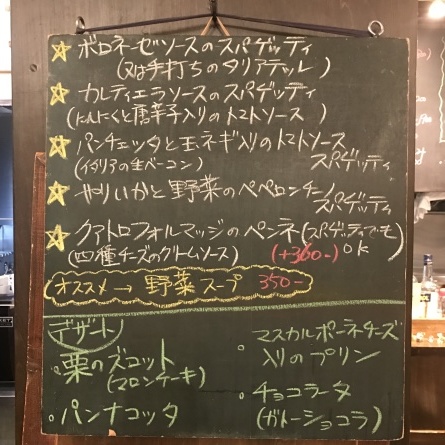 ☆ ボロネーゼソースのスパゲッティ
(又は手打ちのタリアテッル)
☆ カルティエラソースのスパゲッティ
(にんにくと唐辛子入りのトマトソース)
☆ パンチェッタと玉ネギ入りのトマトソース
(イタリアの生ベーコン) スパゲッティ
☆ やりいかと野菜のペペロンチーノ
スパゲッティ
☆ クアトロフォルマッジのペンネ(スパゲッティでも
(四種チーズのクリームソース) (+300-) OK)
オススメ→ 野菜スープ 350-
デザート
・栗のズコット
(マロンケーキ)
・パンナコッタ
・マスカルポーネチーズ
入りのプリン
・チョコラータ
(ガトーショコラ)